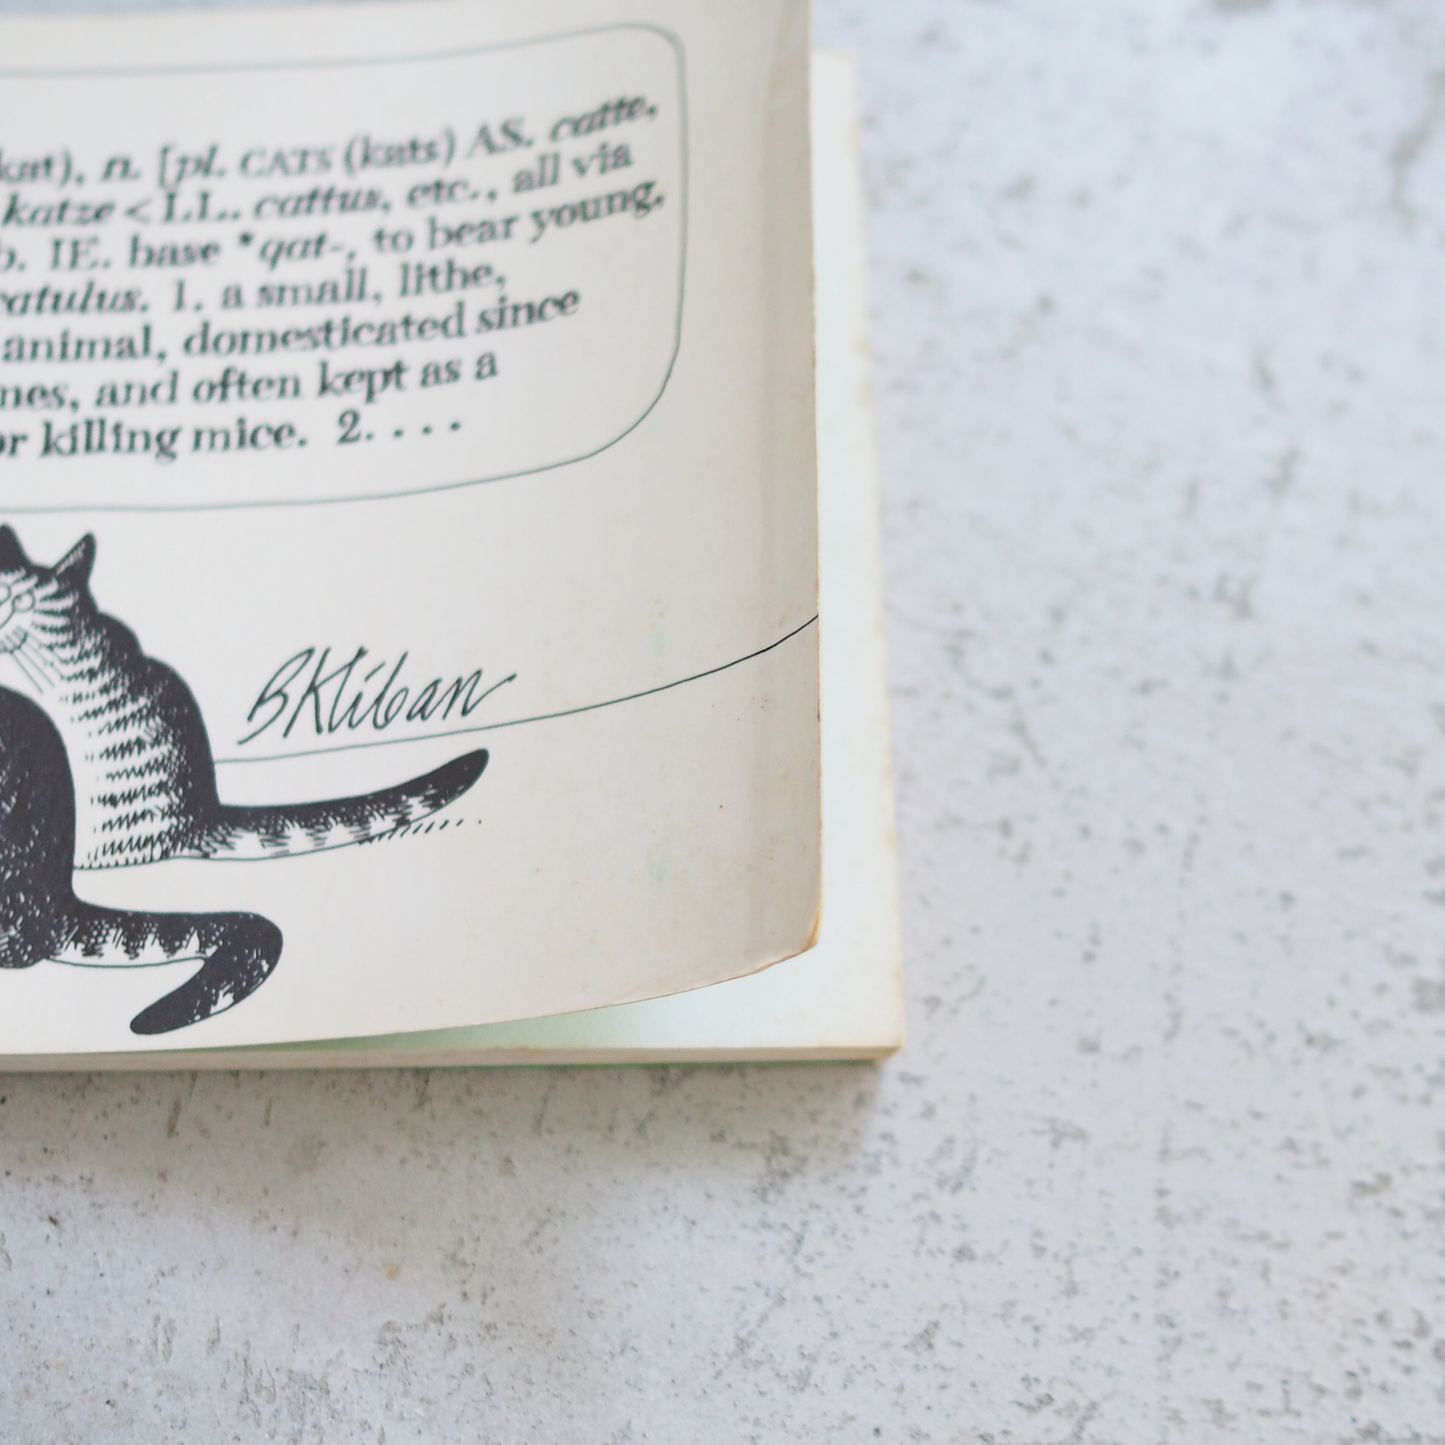 kat), n. [pl. CATS (kats) AS. catte,
katze < LL. cattus, etc., all via
b. IE. base *qat-, to bear young,
catulus. 1. a small, lithe,
animal, domesticated since
mes, and often kept as a
or killing mice. 2. . . .
BKliban